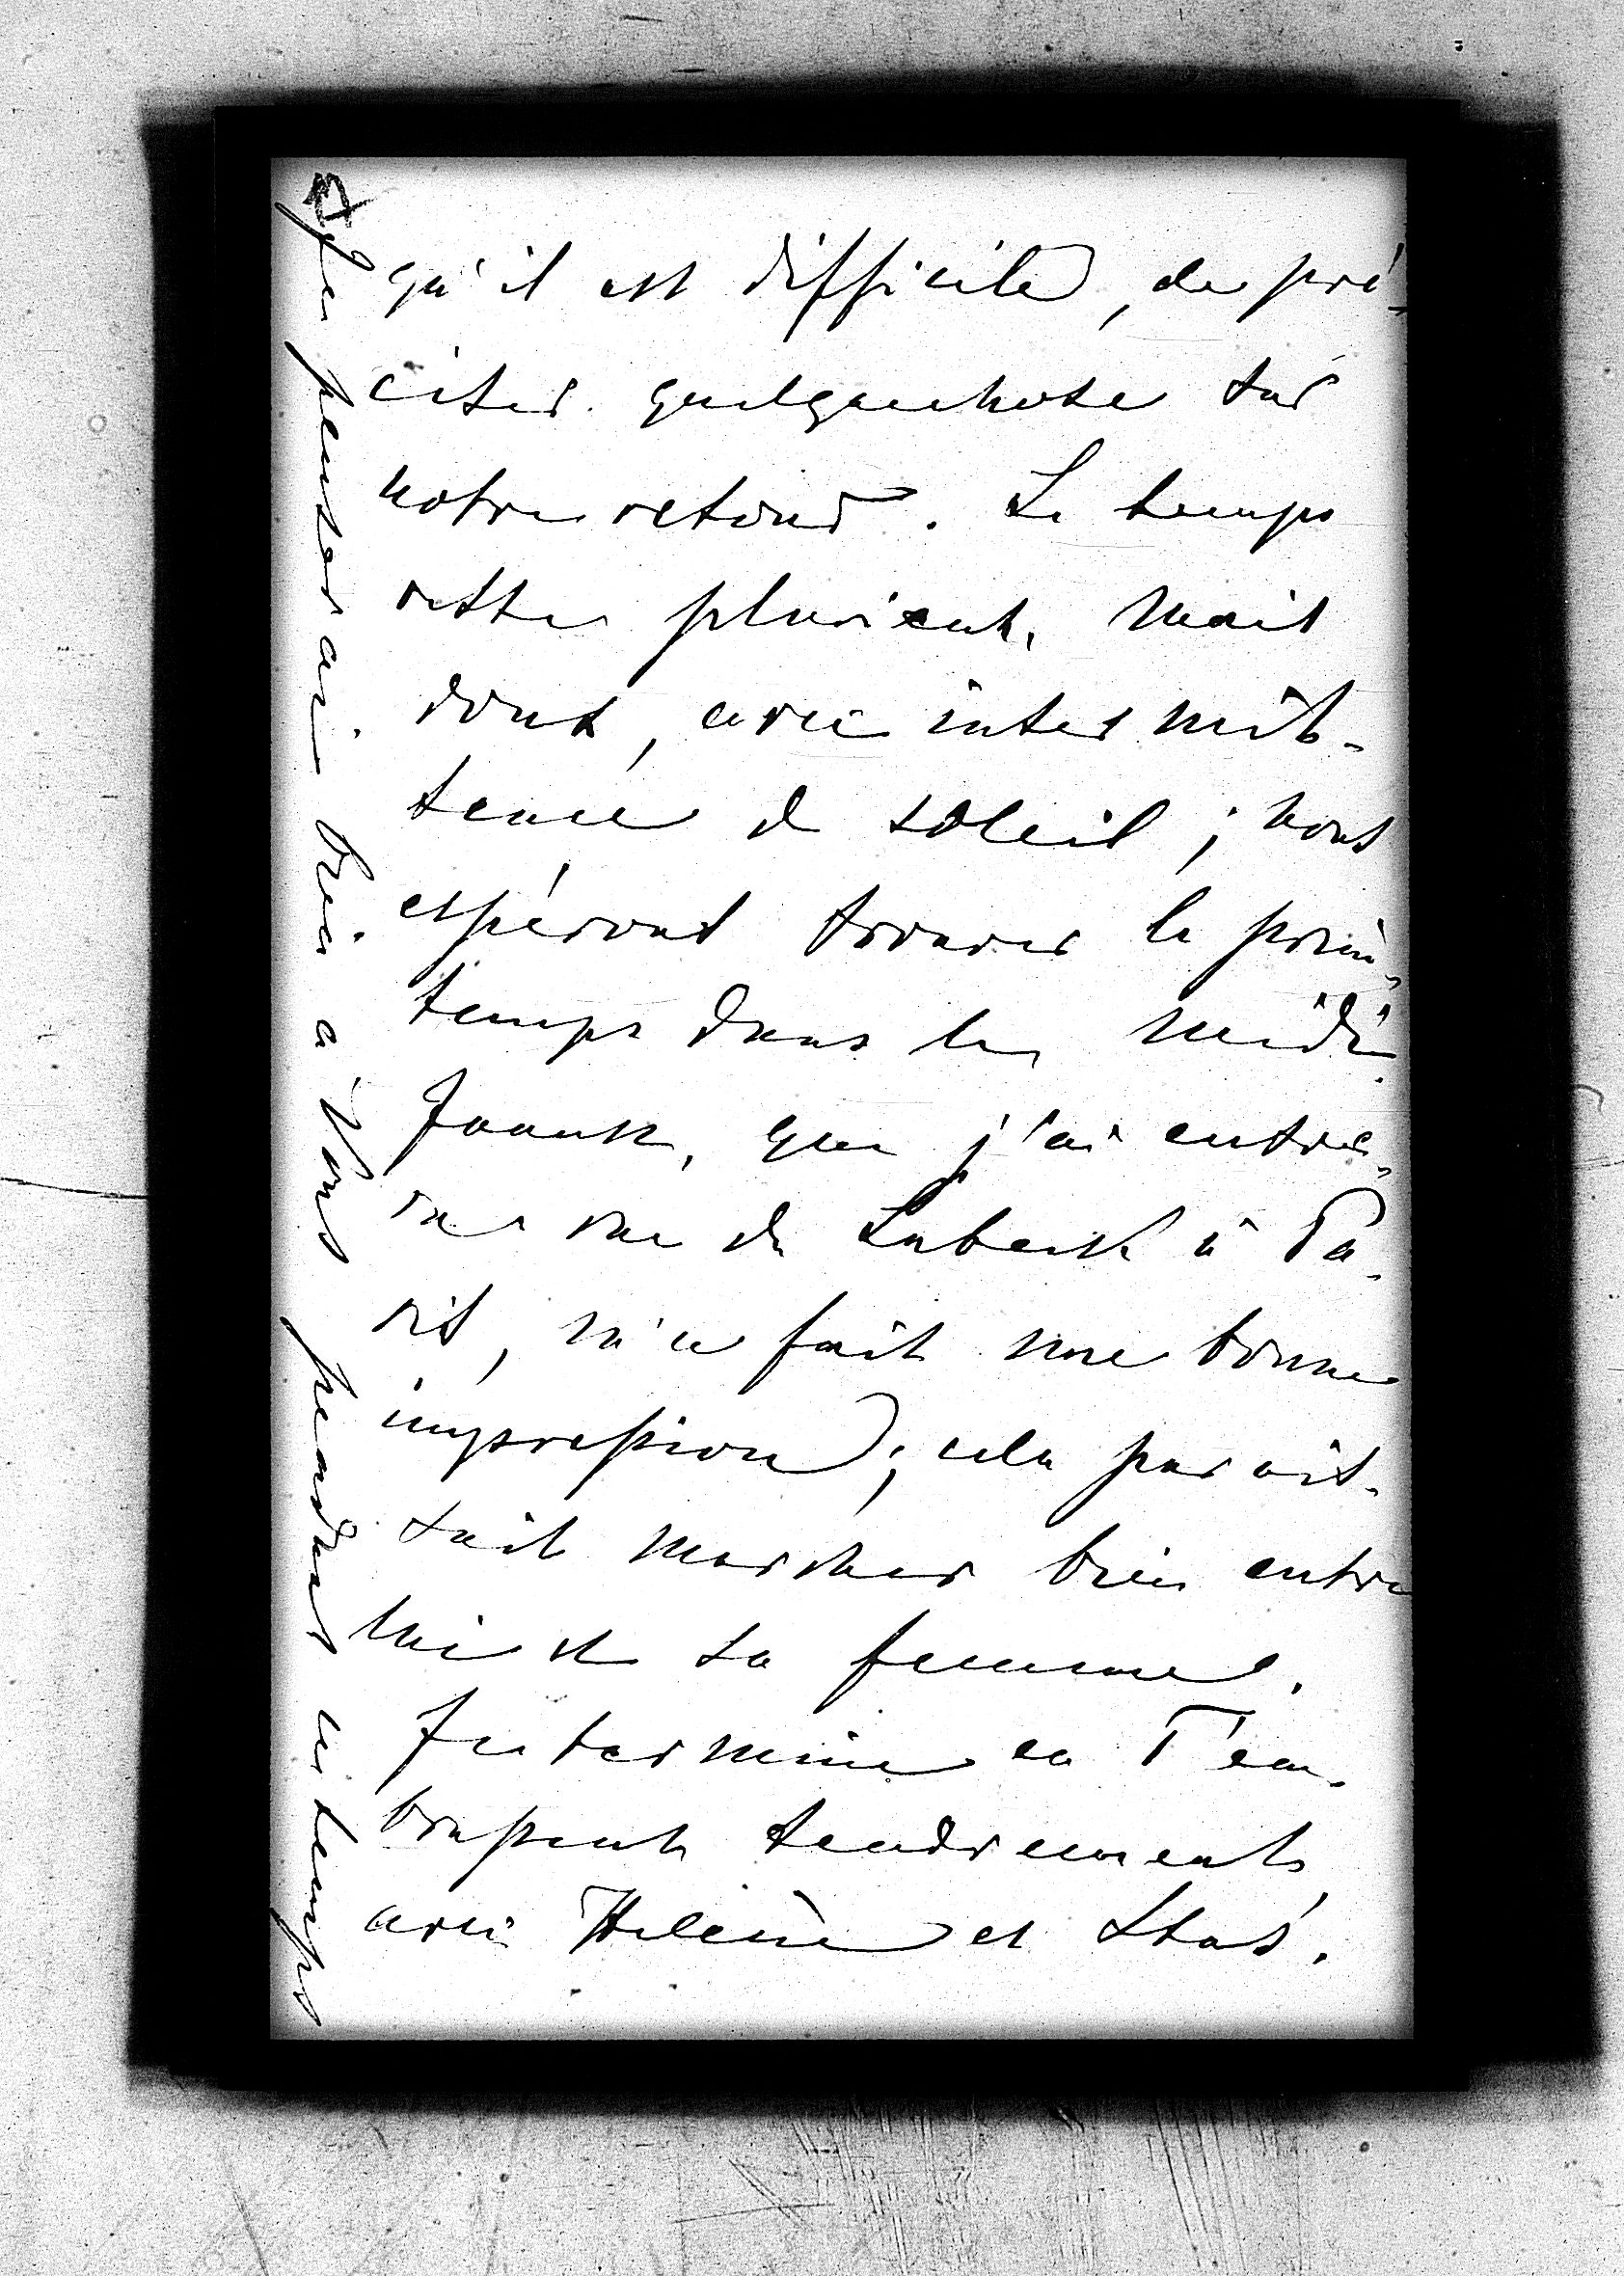 qu'il est difficile, de pré-
ciser quelquechose sur
notre retour. Le temps
reste pluvieux, mais
doux, avec intermit-
tence de soleil; nous
espérons trouver le prin-
temps dans le midi.
que j'ai entre-
vu rue de Lubeck à Pa-
ris, m'a fait une bonne
impression; cela parais-
sait marcher bien entre
lui et sa femme.
Je termine en T'em-
brassant tendrement,
avec Helène et Stas.
Je penserai bien à Vous pendant ce temps